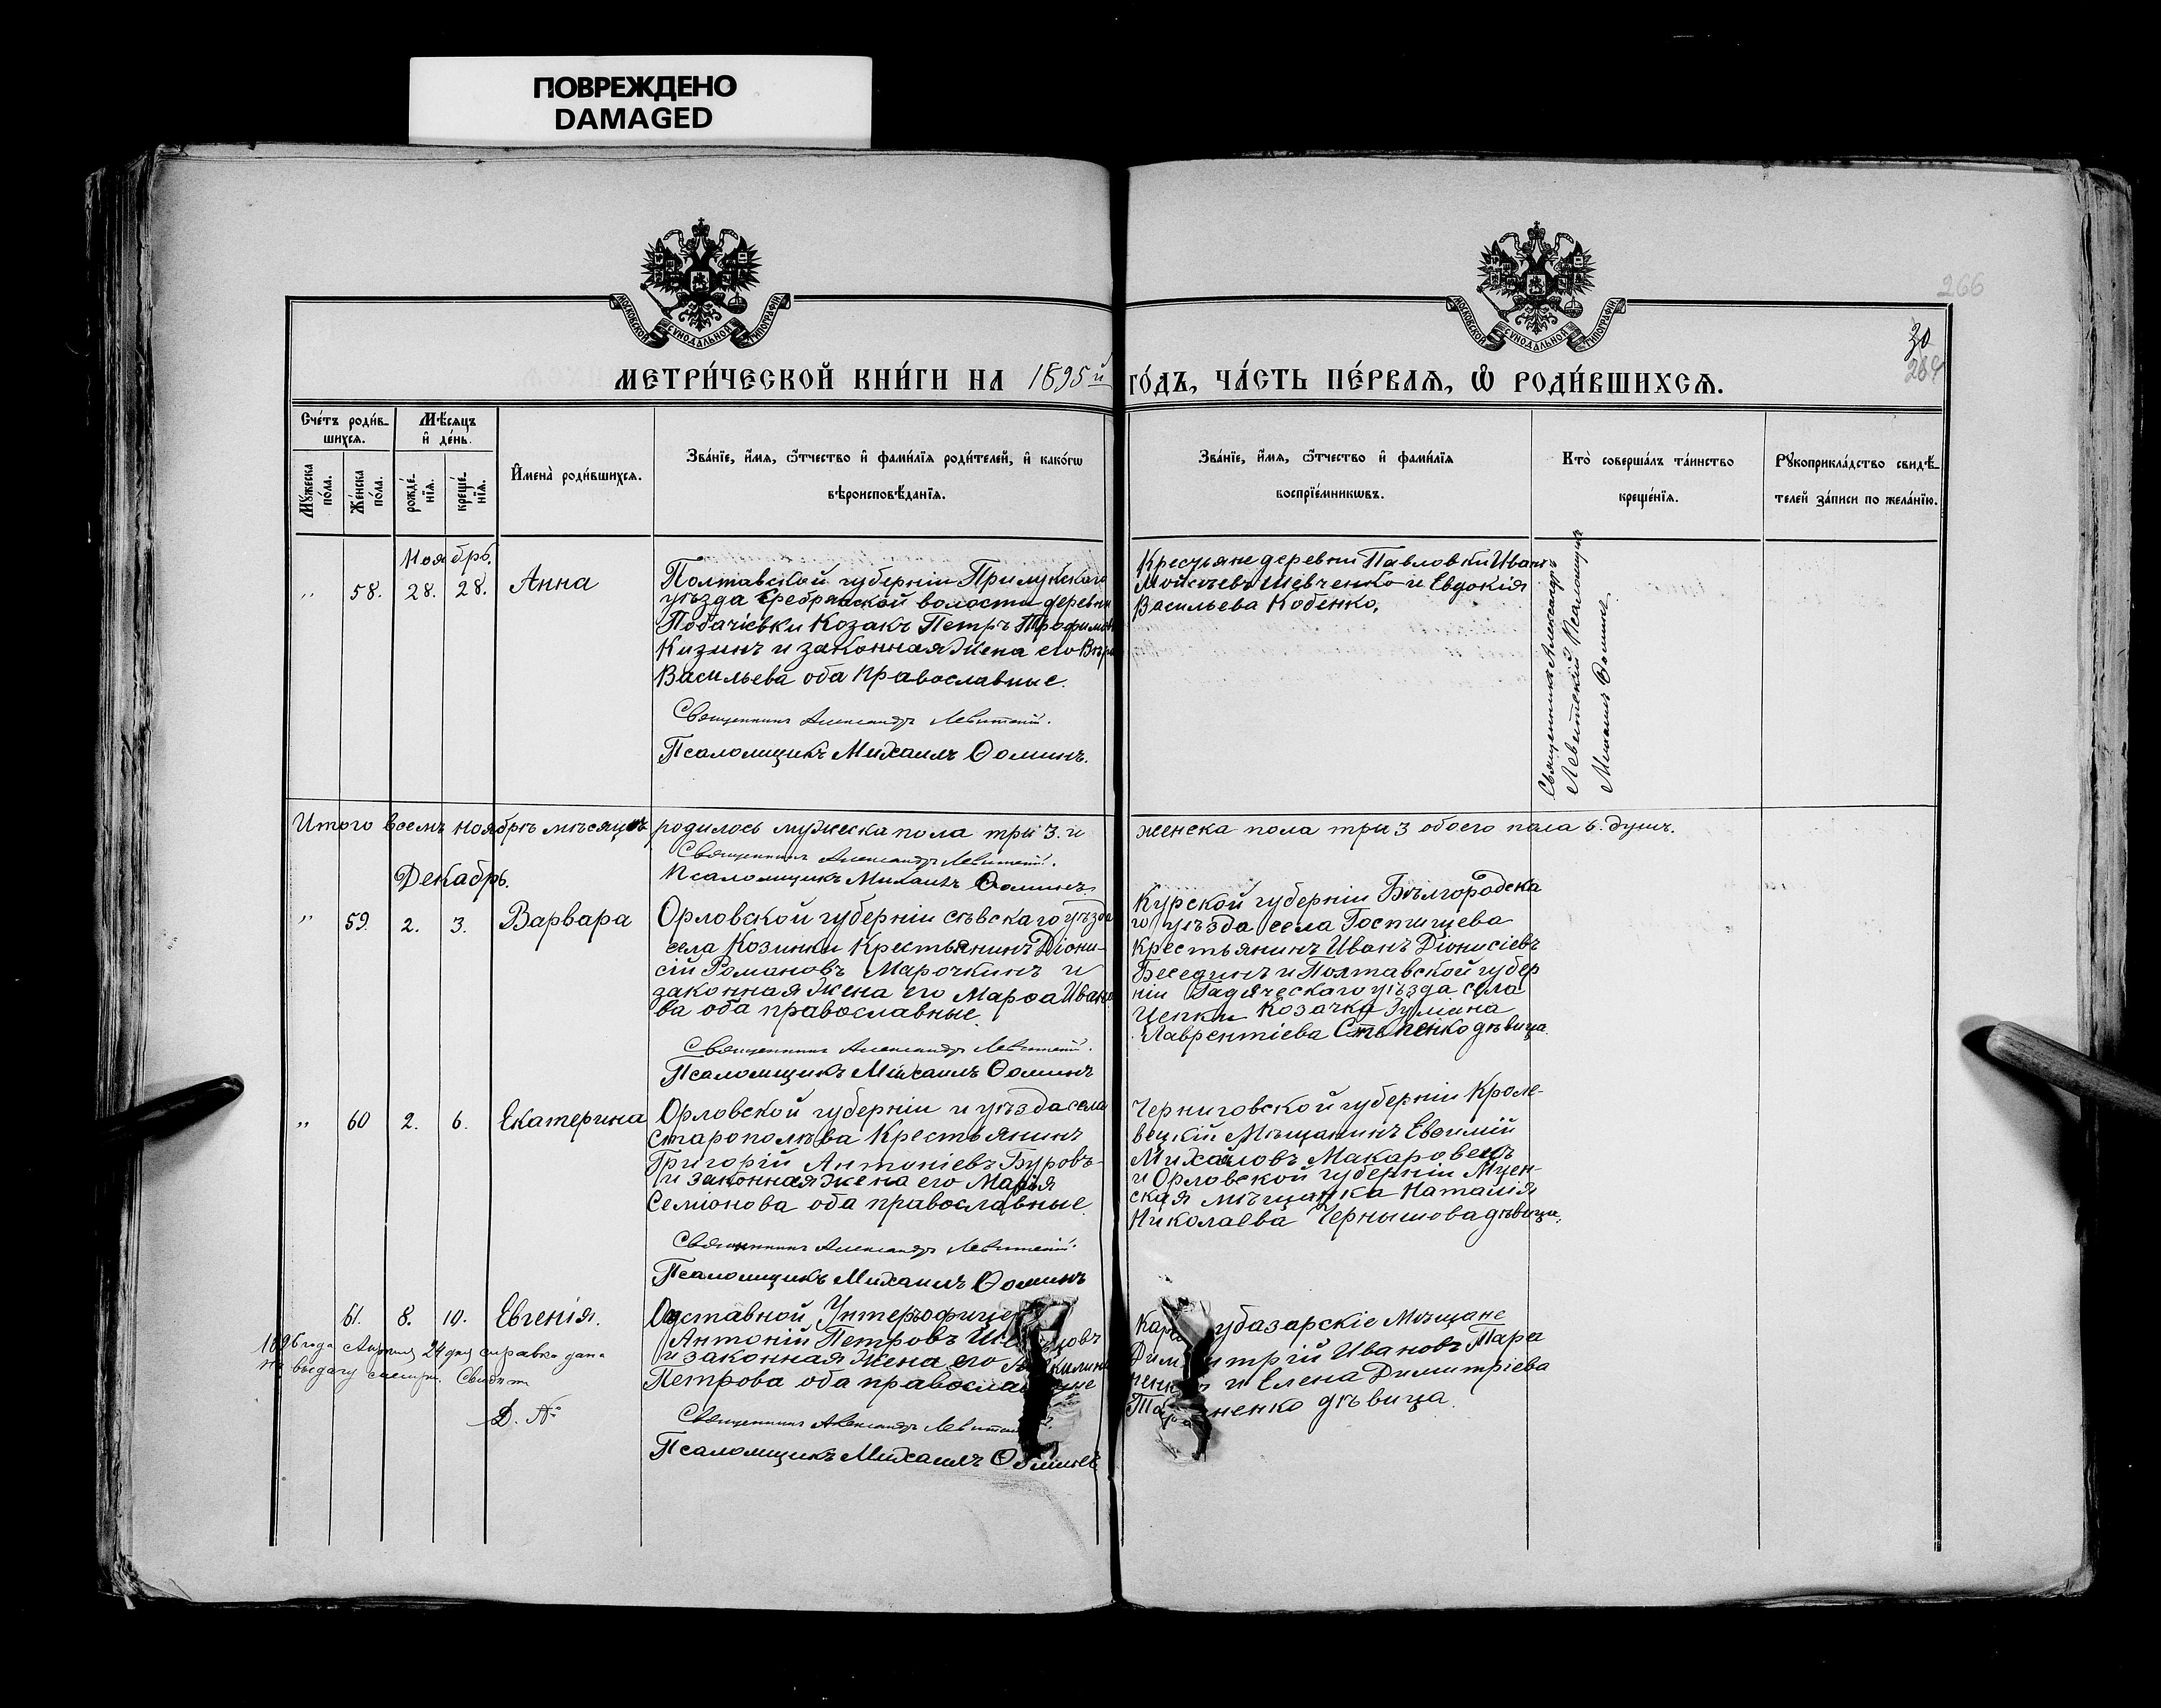 ПОВРЕЖДЕНО
DAMAGED
266
30
264
МОСКОВСКОЙ СѴНОДАЛЬНОЙ ТИПОГРАФІИ
МОСКОВСКОЙ СѴНОДАЛЬНОЙ ТИПОГРАФІИ
МЕТРИ́ЧЕСКОЙ КНИ́ГИ НА 1895й го́дъ, ча́сть пе́рваѧ, ѡ҆ роди́вшихсѧ.
Сче́тъ роди́в-
шихсѧ.
Мꙋ́жеска по́ла.
Же́нска по́ла.
Мѣ́сѧцъ
и҆ де́нь.
рожде́нїѧ.
креще́нїѧ.
И҆мена̀ роди́вшихсѧ.
Зва́нїе, и҆́мѧ, ѻ҆́тчество и҆ фами́лїѧ роди́телей, и҆ како́гѡ
вѣроисповѣ́данїѧ.
Зва́нїе, и҆́мѧ, ѻ҆́тчество и҆ фами́лїѧ
воспрїе́мникѡвъ.
Кто̀ соверша́лъ та́инство
креще́нїѧ.
Рꙋкоприкла́дство свидѣ́-
телей за́писи по жела́нїю.
Ноябрь.
" 58. 28. 28. Анна
Полтавской губерніи Прилукскаго
уѣзда Сребрянской волости деревни
Побачіевки Козакъ Петръ Трофимовъ
Кизимъ и законная жена его Вѣра
Васильева оба Православные.
Священникъ Александръ Левитскій.
Псаломщикъ Михаилъ Ѳоминъ.
Крестьяне деревни Павловки Иванъ
Моисѣевъ Шевченко и Евдокія
Васильева Кобенко.
Священникъ Александръ
Левитскій Псаломщикъ
Михаилъ Ѳоминъ.
Итого всемъ ноябрѣ мѣсяцѣ родилось мужеска пола три 3. и женска пола три 3 обоего пола 6. душъ.
Священникъ Александръ Левитскій.
Псаломщикъ Михаилъ Ѳоминъ
Декабрь.
" 59. 2. 3. Варвара
Орловской губерніи сѣвскаго уѣзда
села Козинки Крестьянинъ Діони-
сій Романовъ Марочкинъ и
законная жена его Марѳа Ивано
ва оба православные
Священникъ Александръ Левитскій.
Псаломщикъ Михаилъ Ѳоминъ
Курской губерніи Бѣлгородска
го уѣзда села Гостищева
Крестьянинъ Иванъ Діонисіевъ
Беседин и Полтавской губер
ніи Гадяческаго уѣзда села
Козачка
Лаврентіева дѣвица.
" 60 2. 6. Екатерина
Орловской губерніи и уѣзда села
старополѣва Крестьянинъ
Григорій Антоніевъ Буровъ
и законная жена его Марія
Семіонова оба православные
Священникъ Александръ Левитскій.
Псаломщикъ Михаилъ Ѳоминъ
Черниговской губерніи Кроле-
вецкій Мѣщанинъ Евѳимій
Михаиловъ Макаровецъ
и Орловской губерніи Мцен-
ская мѣщанка Наталія
Николаева Чернышова дѣвица.
61. 8. 10. Евгенія.
Отставной Унтеръ офице
Антоній Петровъ
и законная жена его
Петрова оба православные
Священникъ Александръ
Псаломщикъ Михаилъ Ѳоминъ
Карасубазарскіе Мѣщане
Димитрій Ивановъ Тара
ненко и Елена Димитріева
Тараненко дѣвица.
1896 года Апрѣля 24 дня справка дана
на выдачу